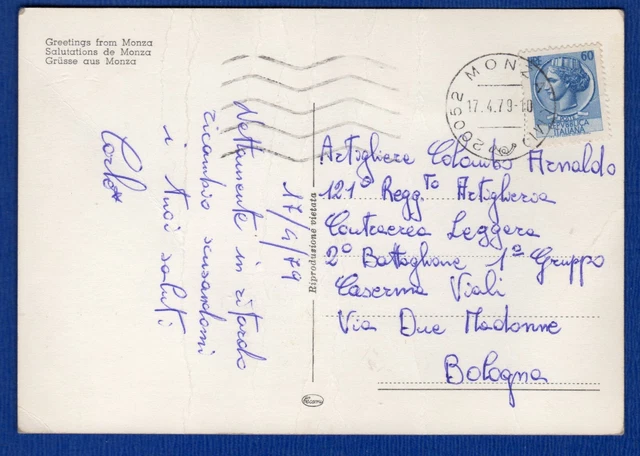 Greetings from Monza
Salutations de Monza
Grüsse aus Monza
17/4/79
Nettamente in ritardo
ricambio scusandomi
i tuoi saluti
Carlo
Riproduzione vietata
20052 MONZA
17.4.79-10
60
REPUBBLICA
ITALIANA
Artigliere Colombo Arnaldo
121° Regg.to Artiglieria
Contraerea Leggera
2° Battaglione 1° Gruppo
Caserma Viali
Via Due Madonne
Bologna